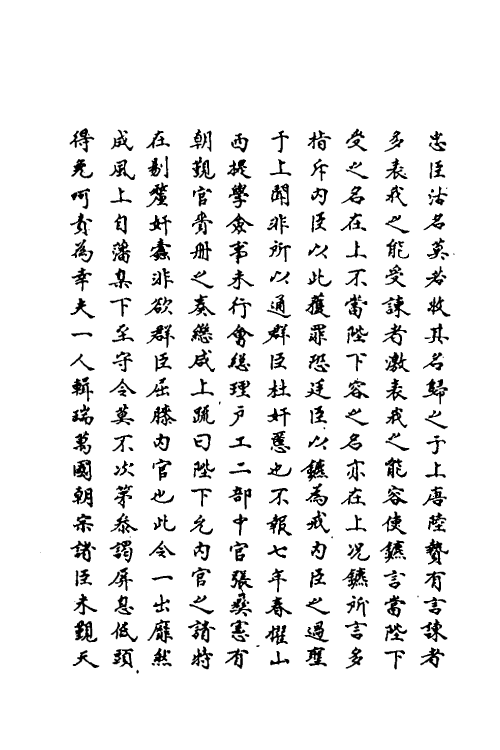 忠臣沽名莫若收其名歸之于上唐陸贄有言諫者
多表我之能受諫者激表我之能容使鑨言當陛下
受之名在上不當陛下容之名亦在上况鑨所言多
指斥内臣以此獲罪恐廷臣以鑨為戒内臣之過壅
于上聞非所以通群臣杜奸慝也不報七年春擢山
西提學僉事未行會總理户工二部中官張彞憲有
朝覲官賫册之奏繼咸上疏曰陛下允内官之請特
在剔釐奸蠹非欲群臣屈膝内官也此令一出靡然
成風上自藩臬下至守令莫不次第叅謁屏息低頭
得免呵責為幸夫一人輯瑞萬國朝宗諸臣未覲天